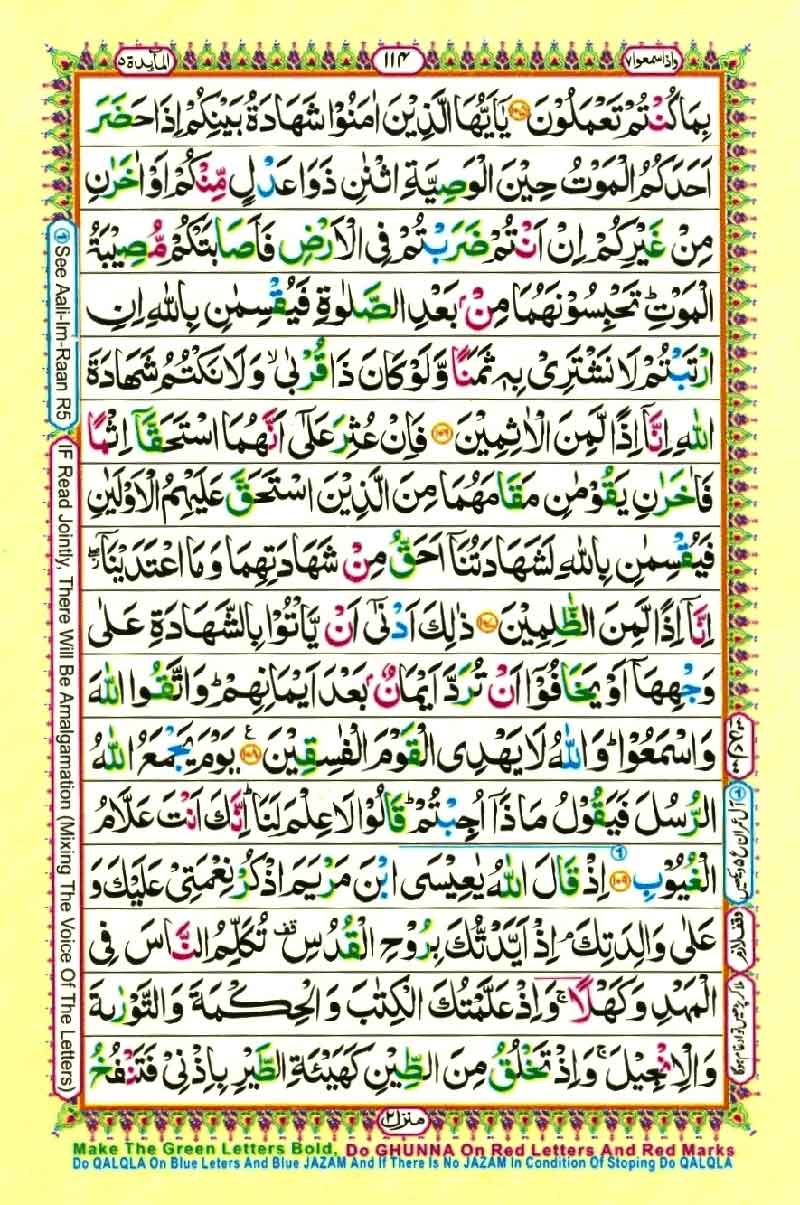 واذاسمعوا۷
۱۱۴
المآئدة۵
بِمَا كُنْتُمْ تَعْمَلُوْنَ ۝۱۰۵ يٰۤاَيُّهَا الَّذِيْنَ اٰمَنُوْا شَهَادَةُ بَيْنِكُمْ اِذَا حَضَرَ
اَحَدَكُمُ الْمَوْتُ حِيْنَ الْوَصِيَّةِ اثْنٰنِ ذَوَا عَدْلٍ مِّنْكُمْ اَوْ اٰخَرٰنِ
مِنْ غَيْرِكُمْ اِنْ اَنْتُمْ ضَرَبْتُمْ فِى الْاَرْضِ فَاَصَابَتْكُمْ مُّصِيْبَةُ
الْمَوْتِ ؕ تَحْبِسُوْنَهُمَا مِنْۢ بَعْدِ الصَّلٰوةِ فَيُقْسِمٰنِ بِاللّٰهِ اِنِ
ارْتَبْتُمْ لَا نَشْتَرِىْ بِهٖ ثَمَنًا وَّلَوْ كَانَ ذَا قُرْبٰى ۙ وَلَا نَكْتُمُ شَهَادَةَ
اللّٰهِ اِنَّاۤ اِذًا لَّمِنَ الْاٰثِمِيْنَ ۝۱۰۶ فَاِنْ عُثِرَ عَلٰٓى اَنَّهُمَا اسْتَحَقَّاۤ اِثْمًا
فَاٰخَرٰنِ يَقُوْمٰنِ مَقَامَهُمَا مِنَ الَّذِيْنَ اسْتَحَقَّ عَلَيْهِمُ الْاَوْلَيٰنِ
فَيُقْسِمٰنِ بِاللّٰهِ لَشَهَادَتُنَاۤ اَحَقُّ مِنْ شَهَادَتِهِمَا وَمَا اعْتَدَيْنَاۤ ۖ
اِنَّاۤ اِذًا لَّمِنَ الظّٰلِمِيْنَ ۝۱۰۷ ذٰلِكَ اَدْنٰٓى اَنْ يَّاْتُوْا بِالشَّهَادَةِ عَلٰى
وَجْهِهَاۤ اَوْ يَخَافُوْۤا اَنْ تُرَدَّ اَيْمَانٌۢ بَعْدَ اَيْمَانِهِمْ ؕ وَاتَّقُوا اللّٰهَ
وَاسْمَعُوْا ؕ وَاللّٰهُ لَا يَهْدِى الْقَوْمَ الْفٰسِقِيْنَ ۝۱۰۸ ع يَوْمَ يَجْمَعُ اللّٰهُ
الرُّسُلَ فَيَقُوْلُ مَاذَاۤ اُجِبْتُمْ ؕ قَالُوْا لَا عِلْمَ لَنَا ؕ اِنَّكَ اَنْتَ عَلَّامُ
الْغُيُوْبِ ۝۱۰۹ اِذْ قَالَ اللّٰهُ يٰعِيْسَى ابْنَ مَرْيَمَ اذْكُرْ نِعْمَتِىْ عَلَيْكَ وَ
عَلٰى وَالِدَتِكَ ۘ اِذْ اَيَّدْتُّكَ بِرُوْحِ الْقُدُسِ قف تُكَلِّمُ النَّاسَ فِى
الْمَهْدِ وَكَهْلًا ۚ وَاِذْ عَلَّمْتُكَ الْكِتٰبَ وَالْحِكْمَةَ وَالتَّوْرٰىةَ
وَالْاِنْجِيْلَ ۚ وَاِذْ تَخْلُقُ مِنَ الطِّيْنِ كَهَيْئَةِ الطَّيْرِ بِاِذْنِىْ فَتَنْفُخُ
① See Aali-Im-Raan R5
IF Read Jointly, There Will Be Amalgamation (Mixing The Voice Of The Letters)
وقف لازم
منزل۲
Make The Green Letters Bold, Do GHUNNA On Red Letters And Red Marks
Do QALQLA On Blue Leters And Blue JAZAM And If There Is No JAZAM In Condition Of Stoping Do QALQLA